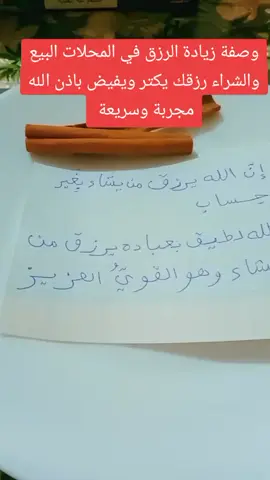 وصفة زيادة الرزق في المحلات البيع
والشراء رزقك يكتر ويفيض باذن الله
مجربة وسريعة
إن الله يرزق من يشاء بغير
حساب
لله لطيف بعباده يرزق من
يشاء وهو القويُّ العزيز